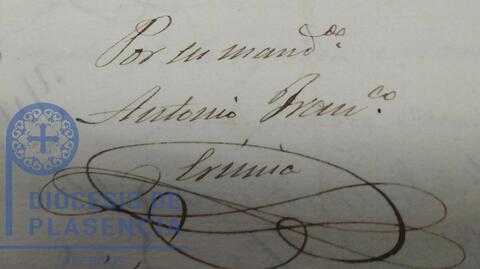 Por su mand.do
Antonio Fran.co
DIÓCESIS DE
PLASENCIA